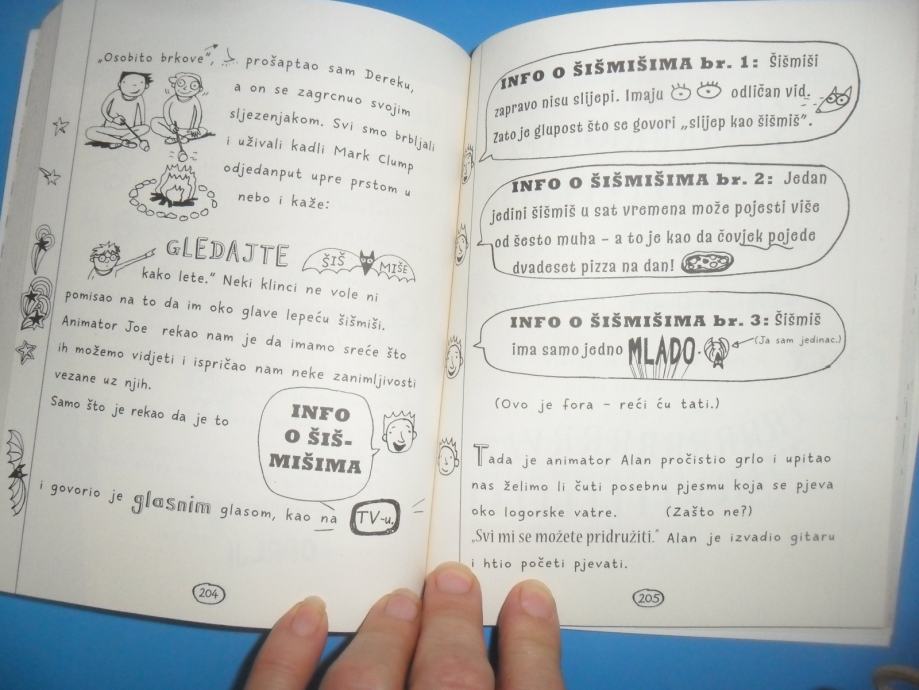 „Osobito brkove”, prošaptao sam Dereku,
a on se zagrcnuo svojim
sljezenjakom. Svi smo brbljali
i uživali kadli Mark Clump
odjedanput upre prstom u
nebo i kaže:
GLEDAJTE ŠIŠ MIŠE
kako lete.” Neki klinci ne vole ni
pomisao na to da im oko glave lepeću šišmiši.
Animator Joe rekao nam je da imamo sreće što
ih možemo vidjeti i ispričao nam neke zanimljivosti
vezane uz njih.
Samo što je rekao da je to
INFO
O ŠIŠ-
MIŠIMA
i govorio je glasnim glasom, kao na TV-u.
204
INFO O ŠIŠMIŠIMA br. 1: Šišmiši
zapravo nisu slijepi. Imaju odličan vid.
Zato je glupost što se govori „slijep kao šišmiš”.
INFO O ŠIŠMIŠIMA br. 2: Jedan
jedini šišmiš u sat vremena može pojesti više
od šesto muha – a to je kao da čovjek pojede
dvadeset pizza na dan!
INFO O ŠIŠMIŠIMA br. 3: Šišmiš
ima samo jedno MLADO. (Ja sam jedinac.)
(Ovo je fora – reći ću tati.)
Tada je animator Alan pročistio grlo i upitao
nas želimo li čuti posebnu pjesmu koja se pjeva
oko logorske vatre. (Zašto ne?)
„Svi mi se možete pridružiti.” Alan je izvadio gitaru
i htio početi pjevati.
205